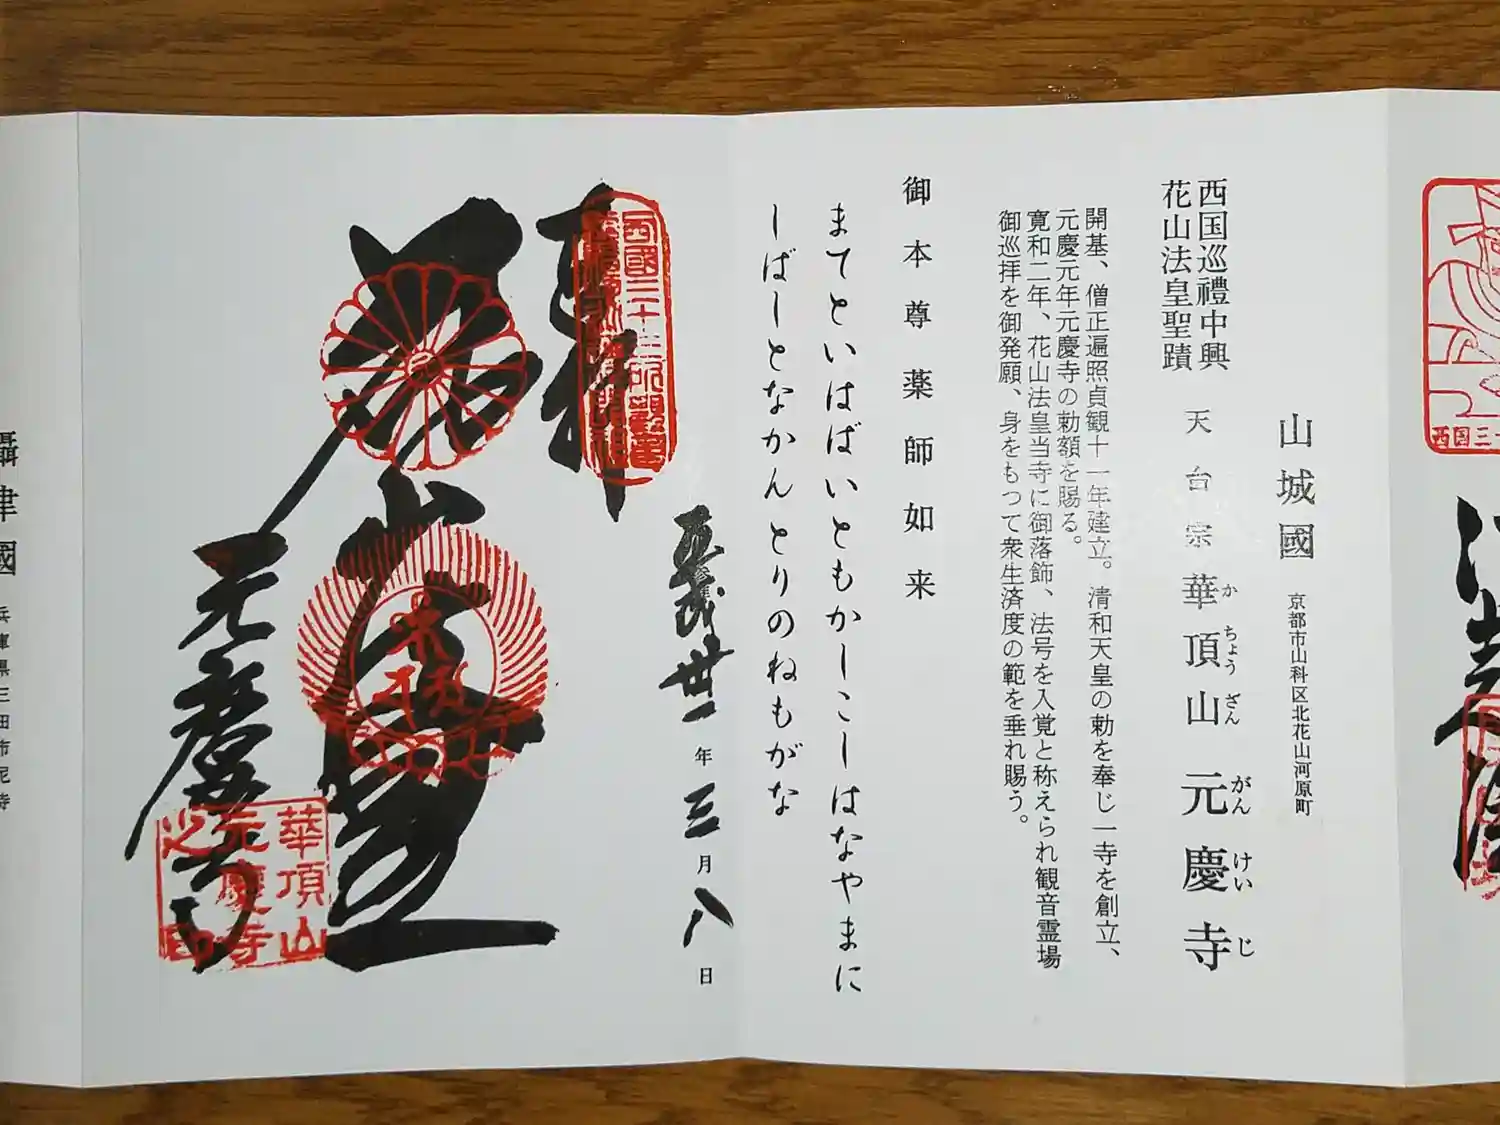 西国三十
山城國
京都市山科区北花山河原町
西国巡禮中興
花山法皇聖蹟
天台宗 華頂山 元慶寺
か ちょう ざん がん けい じ
開基、僧正遍照貞観十一年建立。清和天皇の勅を奉じ一寺を創立、
元慶元年元慶寺の勅額を賜る。
寛和二年、花山法皇当寺に御落飾、法号を入覚と称えられ観音霊場
御巡拝を御発願、身をもつて衆生済度の範を垂れ賜う。
御本尊薬師如来
まてといはばいともかしこしはなやまに
しばしとなかんとりのねもがな
奉拝
西國三十三所観音
平成卅一年三月八日
元慶寺
華頂山
元慶寺
之印
攝津國
兵庫県三田市尼寺